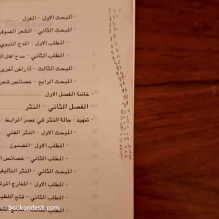 - المبحث الاول - الغزل
- المبحث الثاني - الشعر الصوفي
- المطلب الاول - المدح النبوي
- المطلب الثاني - مدح اهل
- المبحث الثالث - أغراض أخرى
- المبحث الرابع - خصائص شعر
خاتمة الفصل الاول
الفصل الثاني - النثر
تمهيد : حالة النثر في عصر المرابط
- المبحث الاول - النثر الفني
- المطلب الاول - المضمون
- المطلب الثاني - خصائص
- المبحث الثاني - النثر التأليفي
- المطلب الاول -
- المطلب الثاني -
bookendesk.com